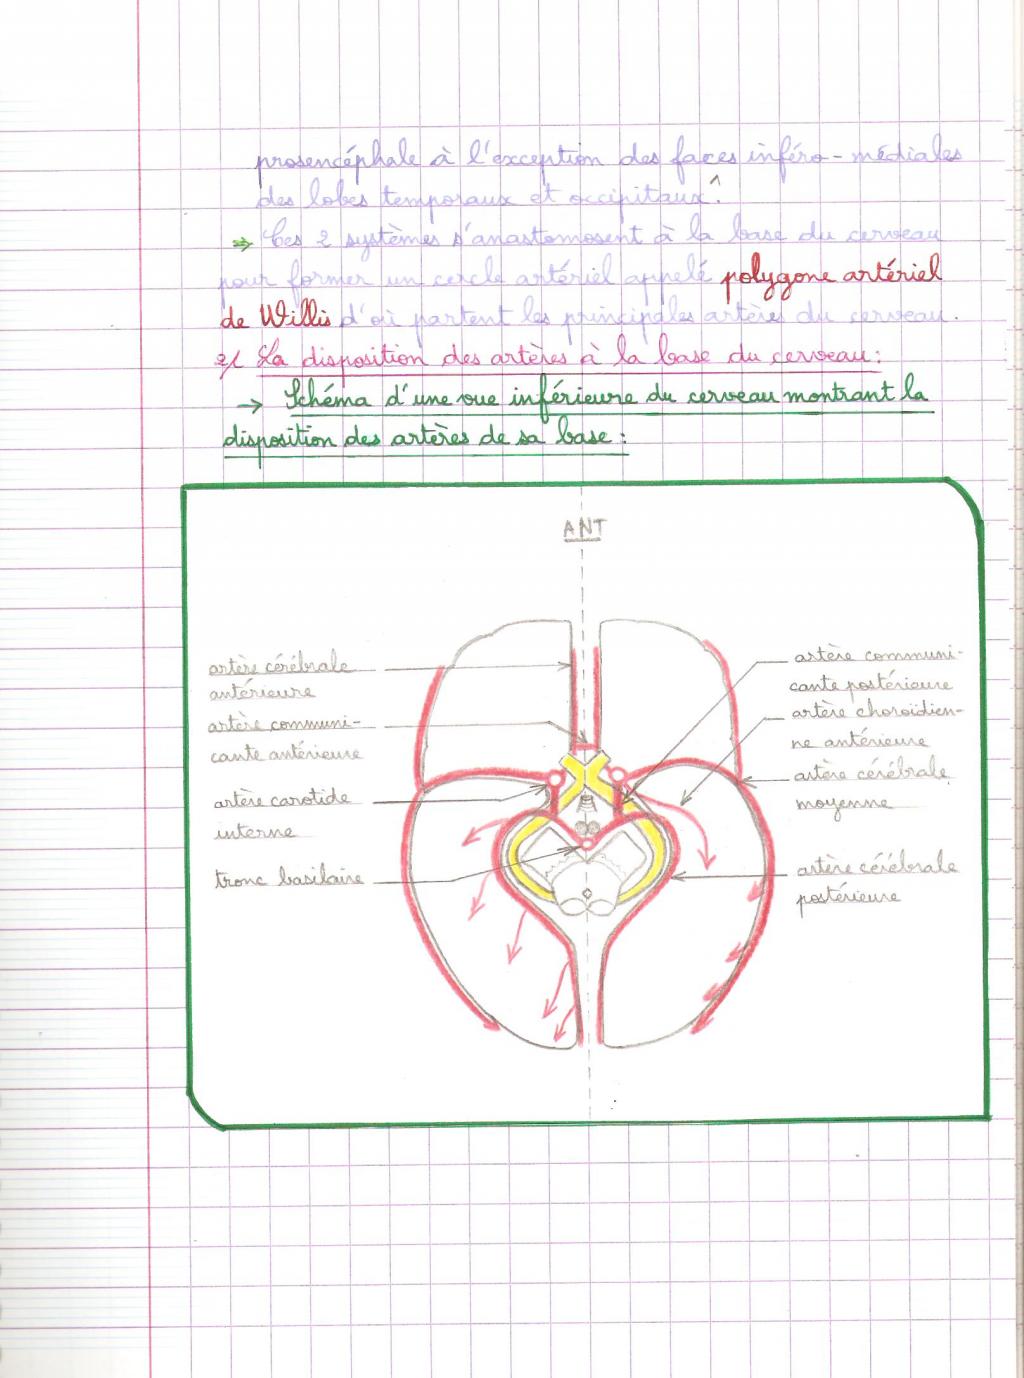 prosencéphale à l'exception des faces inféro-médiales
des lobes temporaux et occipitaux.
⇒ Ces 2 systèmes s'anastomosent à la base du cerveau
pour former un cercle artériel appelé polygone artériel
de Willis d'où partent les principales artères du cerveau.
2/ La disposition des artères à la base du cerveau:
→ Schéma d'une vue inférieure du cerveau montrant la
disposition des artères de sa base:
ANT
artère cérébrale
antérieure
artère communi-
cante antérieure
artère carotide
interne
tronc basilaire
artère communi-
cante postérieure
artère choroïdien-
ne antérieure
artère cérébrale
moyenne
artère cérébrale
postérieure